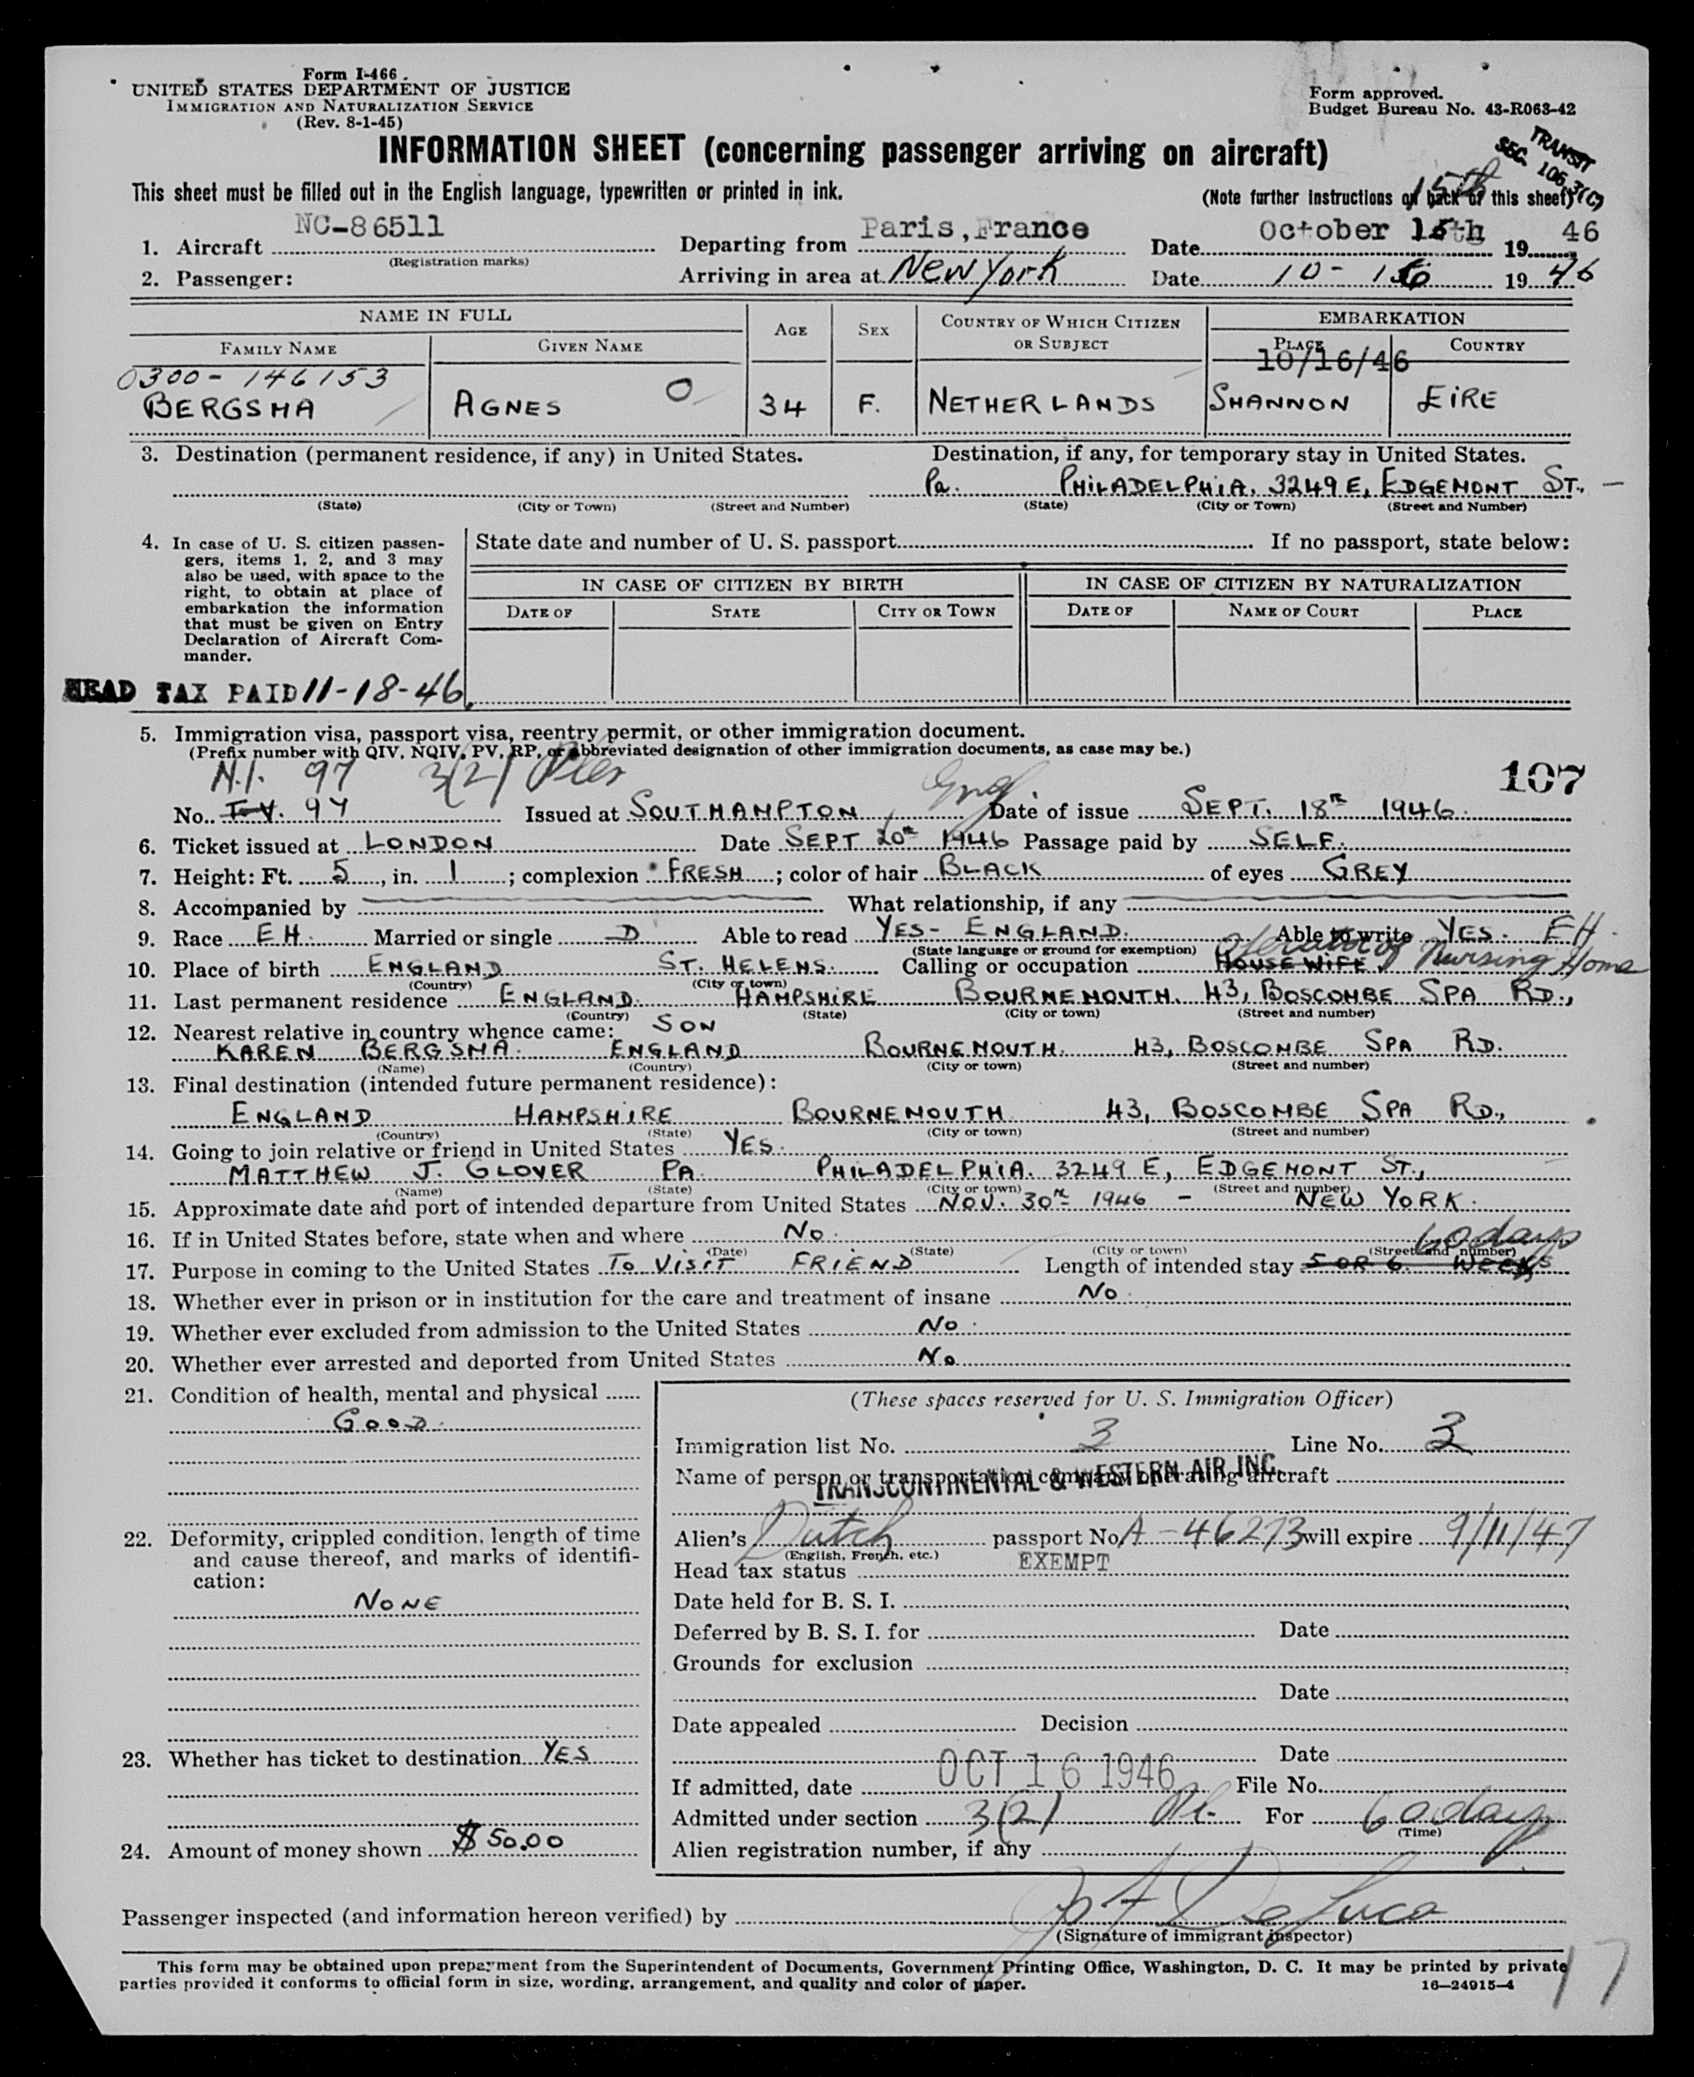 Form I-466
UNITED STATES DEPARTMENT OF JUSTICE
IMMIGRATION AND NATURALIZATION SERVICE
(Rev. 8-1-45)
Form approved.
Budget Bureau No. 43-R063-42
TRANSIT
SEC. 106.3(C)
INFORMATION SHEET (concerning passenger arriving on aircraft)
This sheet must be filled out in the English language, typewritten or printed in ink.
(Note further instructions on back of this sheet)
15th
1. Aircraft NC-86511 Departing from Paris,France Date October 15th 1946
(Registration marks)
2. Passenger: Arriving in area at New York Date 10-16 1946
NAME IN FULL AGE SEX COUNTRY OF WHICH CITIZEN OR SUBJECT EMBARKATION
FAMILY NAME GIVEN NAME PLACE COUNTRY
0300-146153 10/16/46
BERGSMA AGNES O 34 F. NETHERLANDS SHANNON EIRE
3. Destination (permanent residence, if any) in United States. Destination, if any, for temporary stay in United States.
Pa. PHILADELPHIA. 3249 E, EDGEMONT ST., —
(State) (City or Town) (Street and Number) (State) (City or Town) (Street and Number)
4. In case of U. S. citizen passengers, items 1, 2, and 3 may also be used, with space to the right, to obtain at place of embarkation the information that must be given on Entry Declaration of Aircraft Commander.
State date and number of U. S. passport If no passport, state below:
IN CASE OF CITIZEN BY BIRTH IN CASE OF CITIZEN BY NATURALIZATION
DATE OF STATE CITY OR TOWN DATE OF NAME OF COURT PLACE
HEAD TAX PAID 11-18-46
5. Immigration visa, passport visa, reentry permit, or other immigration document.
(Prefix number with QIV, NQIV, PV, RP, or abbreviated designation of other immigration documents, as case may be.)
N.I. 97 3(2) Eng 107
No. T.V. 97 Issued at SOUTHAMPTON Date of issue SEPT. 18TH 1946.
6. Ticket issued at LONDON Date SEPT 20TH 1946 Passage paid by SELF.
7. Height: Ft. 5, in. 1; complexion FRESH; color of hair BLACK of eyes GREY
8. Accompanied by What relationship, if any
9. Race EH. Married or single D Able to read YES- ENGLAND. Able to write YES. EH.
(State language or ground for exemption)
Operator of Nursing Home
10. Place of birth ENGLAND ST. HELENS. Calling or occupation HOUSEWIFE
(Country) (City or town)
11. Last permanent residence ENGLAND. HAMPSHIRE BOURNEMOUTH. 43, BOSCOMBE SPA RD.,
(Country) (State) (City or town) (Street and number)
12. Nearest relative in country whence came: SON
KAREN BERGSMA. ENGLAND BOURNEMOUTH. 43, BOSCOMBE SPA RD.
(Name) (Country) (City or town) (Street and number)
13. Final destination (intended future permanent residence):
ENGLAND HAMPSHIRE BOURNEMOUTH 43, BOSCOMBE SPA RD.,
(Country) (State) (City or town) (Street and number)
14. Going to join relative or friend in United States YES.
MATTHEW J. GLOVER PA. PHILADELPHIA. 3249 E, EDGEMONT ST.,
(Name) (State) (City or town) (Street and number)
15. Approximate date and port of intended departure from United States NOV. 30TH 1946 - NEW YORK.
16. If in United States before, state when and where No.
(Date) (State) (City or town) (Street and number)
60 days
17. Purpose in coming to the United States TO VISIT FRIEND Length of intended stay 5 OR 6. WEEKS
18. Whether ever in prison or in institution for the care and treatment of insane No.
19. Whether ever excluded from admission to the United States No.
20. Whether ever arrested and deported from United States No
21. Condition of health, mental and physical
GOOD.
22. Deformity, crippled condition, length of time and cause thereof, and marks of identification:
NONE
23. Whether has ticket to destination YES
24. Amount of money shown $50.00
(These spaces reserved for U. S. Immigration Officer)
Immigration list No. 3 Line No. 3
Name of person or transportation company operating aircraft
TRANSCONTINENTAL & WESTERN AIR INC.
Alien's Dutch passport No. A-46273 will expire 9/11/47
(English, French, etc.)
Head tax status EXEMPT
Date held for B. S. I.
Deferred by B. S. I. for Date
Grounds for exclusion
Date
Date appealed Decision
Date
If admitted, date OCT 16 1946 File No.
Admitted under section 3(2) Pl. For 60 days
(Time)
Alien registration number, if any
Passenger inspected (and information hereon verified) by De Luca
(Signature of immigrant inspector)
This form may be obtained upon prepayment from the Superintendent of Documents, Government Printing Office, Washington, D. C. It may be printed by private
parties provided it conforms to official form in size, wording, arrangement, and quality and color of paper. 16—24915-4
17